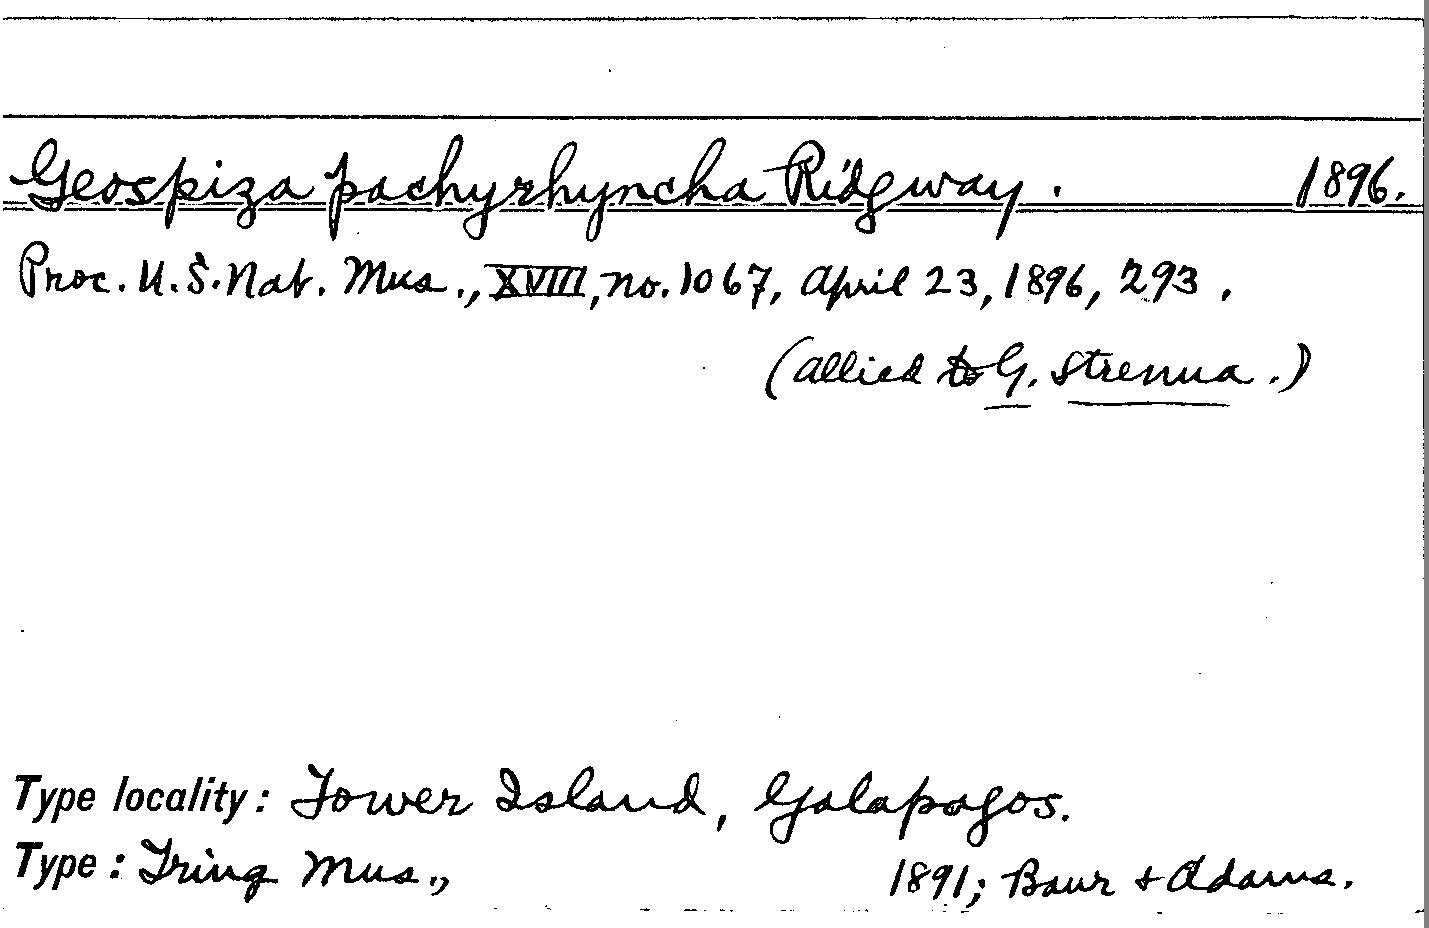 Geospiza pachyrhyncha Ridgway. 1896.
Proc. U.S. Nat. Mus., XVIII, no. 1067, April 23, 1896, 293.
(allied to G. strenua.)
Type locality: Tower Island, Galapagos.
Type: Tring Mus., 1891; Baur + Adams.